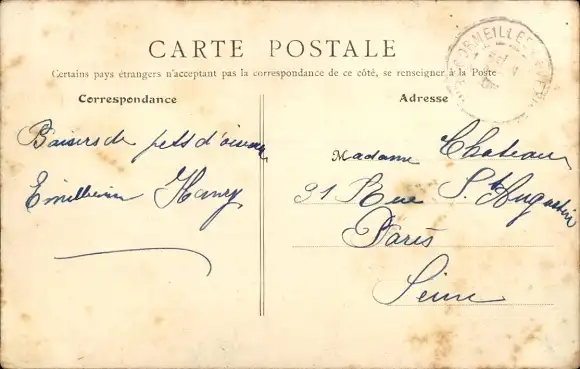 CARTE POSTALE
Certains pays étrangers n'acceptant pas la correspondance de ce côté, se renseigner à la Poste
Correspondance
Baisers de petit d'oiseau
Henry
Adresse
Madame Chateau
91 Rue St Augustin
Paris
Seine
CORMEILLES